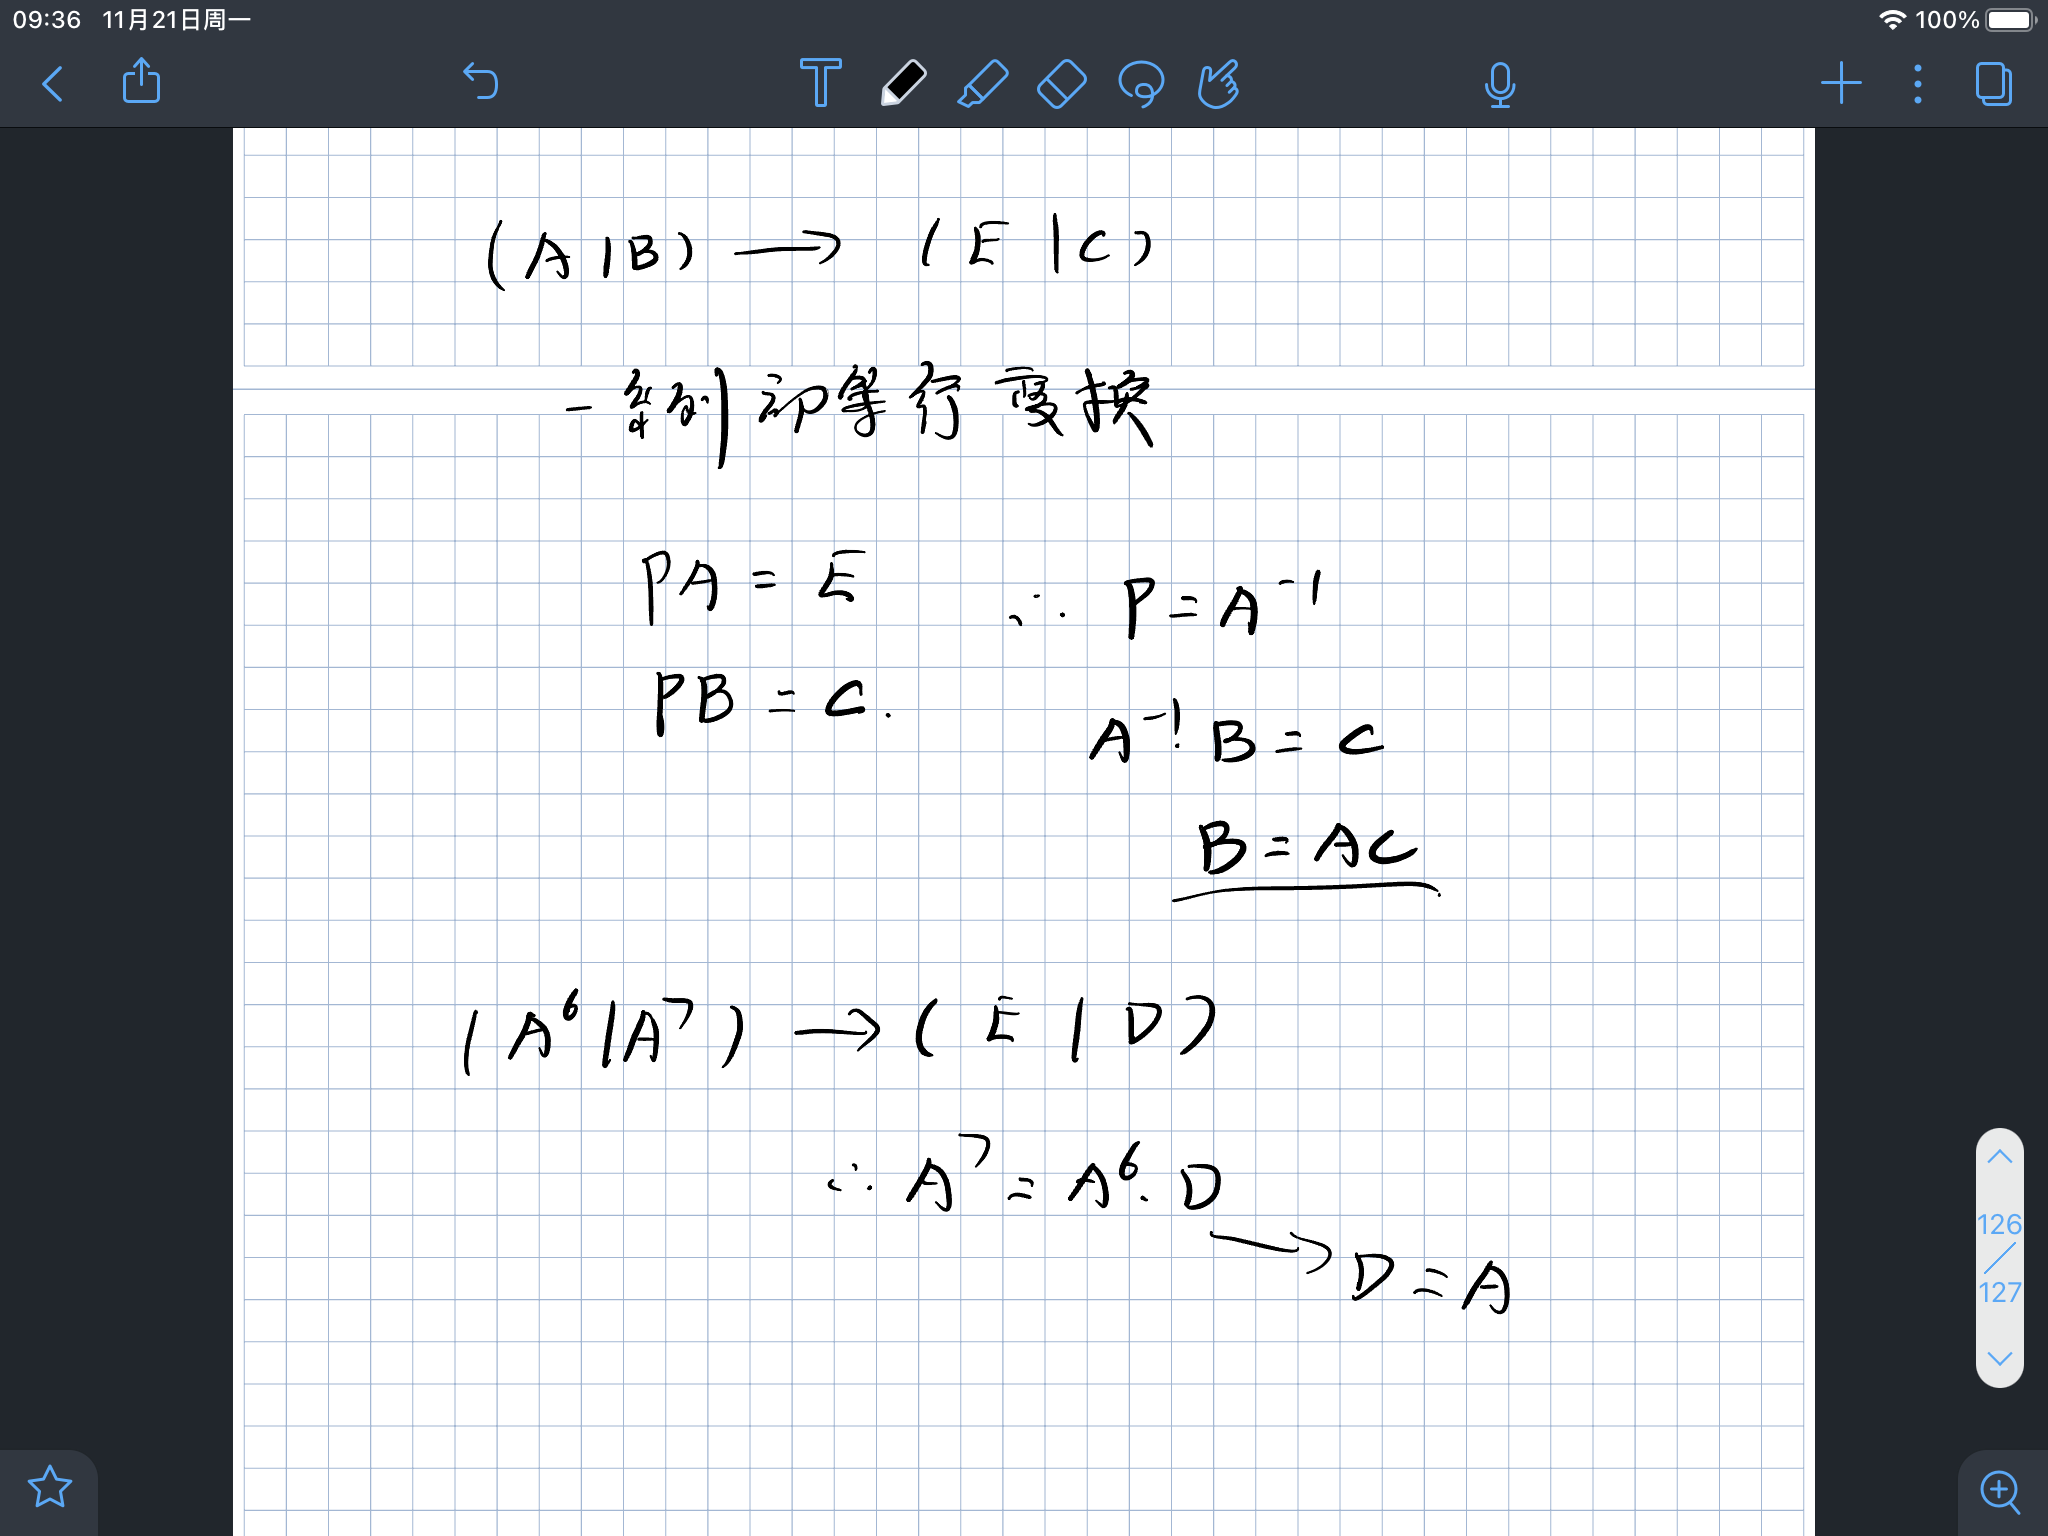 09:36 11月21日周一 100%
(A|B) → (E|C)
一系列初等行变换
PA = E ∴ P = A⁻¹
PB = C. A⁻¹·B = C
B = AC
(A⁶|A⁷) → (E|D)
∴ A⁷ = A⁶·D
→ D = A
126
/
127